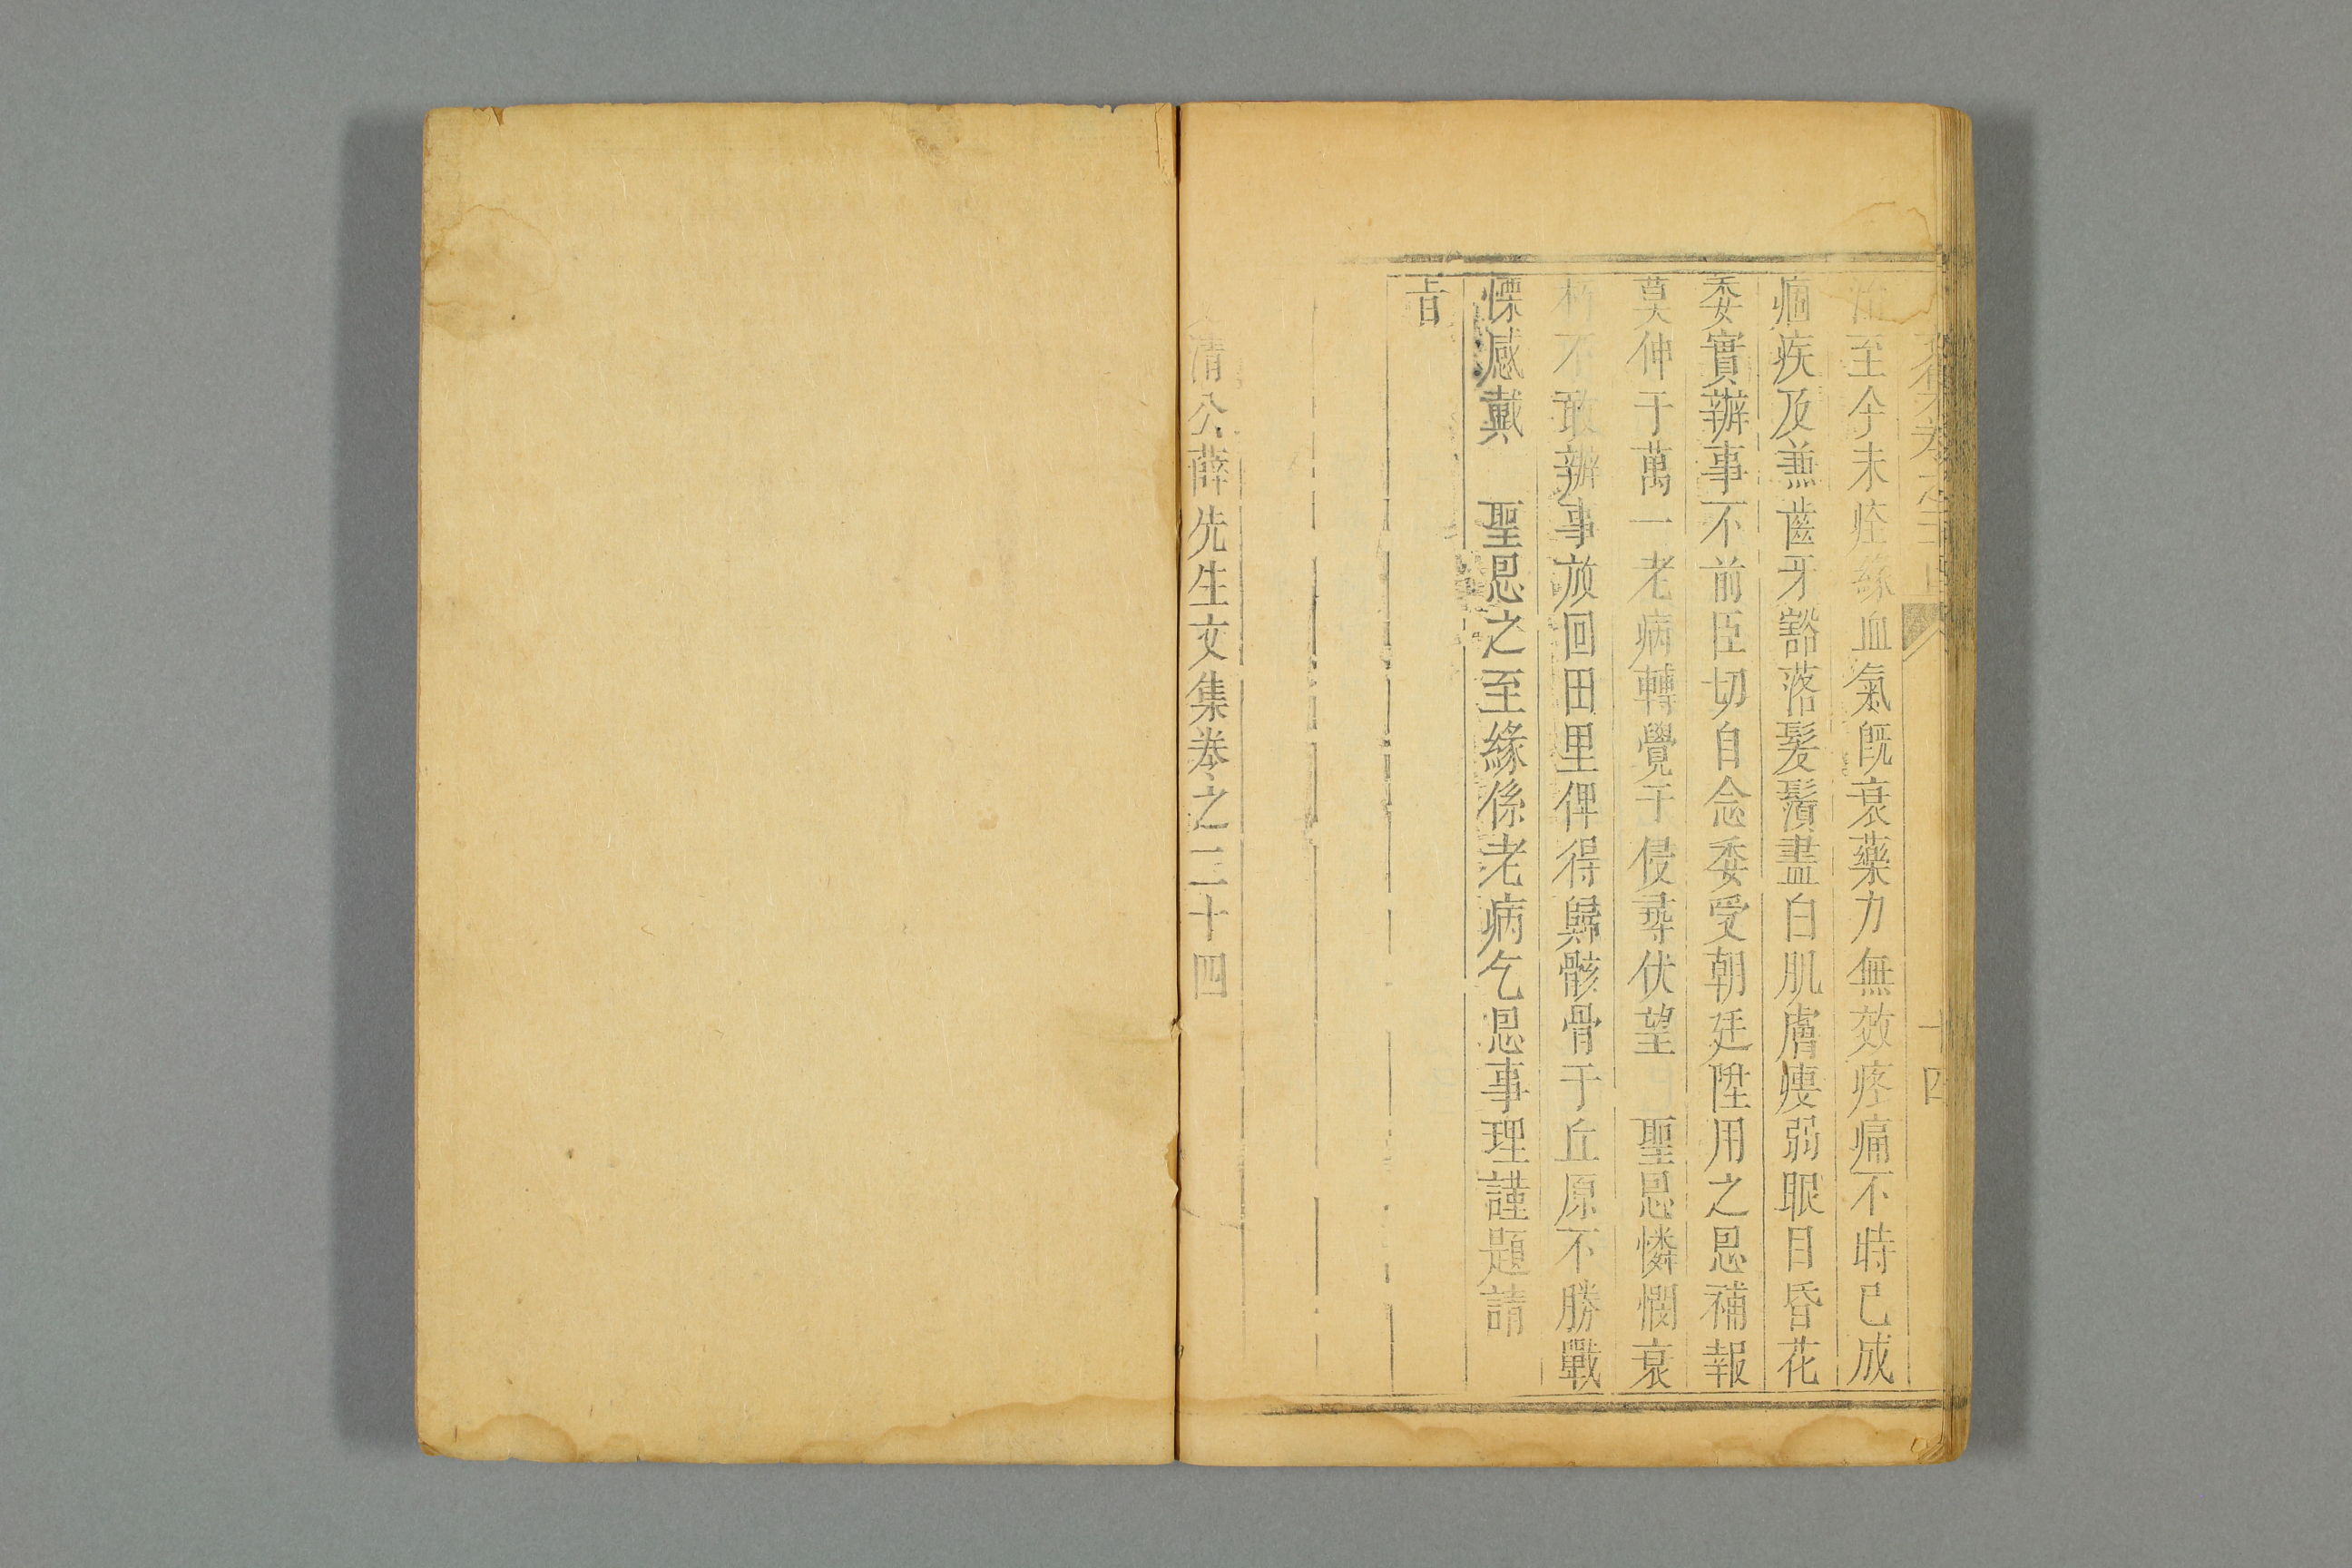 文集卷之二十四
十四
至今未痊緣血氣旣衰藥力無效疼痛不時已成
痼疾及兼齒牙豁落髪鬚盡白肌膚痩弱眼目昏花
委實辦事不前臣切自念委受朝廷陞用之恩補報
莫伸于萬一老病轉覺于侵尋伏望 聖恩憐憫衰
朽不敢辦事放回田里俾得歸骸骨于丘原不勝戰
慄感戴 聖恩之至緣係老病乞恩事理謹題請
旨
清公薛先生文集卷之二十四